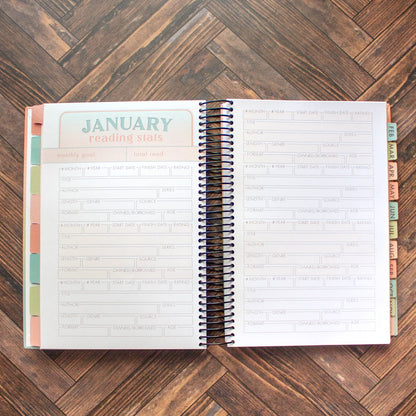 JANUARY
reading stats
monthly goal total read
# MONTH # YEAR START DATE FINISH DATE RATING
TITLE
AUTHOR SERIES
LENGTH GENRE SOURCE
FORMAT OWNED/BORROWED AGE
# MONTH # YEAR START DATE FINISH DATE RATING
TITLE
AUTHOR SERIES
LENGTH GENRE SOURCE
FORMAT OWNED/BORROWED AGE
# MONTH # YEAR START DATE FINISH DATE RATING
TITLE
AUTHOR SERIES
LENGTH GENRE SOURCE
FORMAT OWNED/BORROWED AGE
# MONTH # YEAR START DATE FINISH DATE RATING
TITLE
AUTHOR SERIES
LENGTH GENRE SOURCE
FORMAT OWNED/BORROWED AGE
# MONTH # YEAR START DATE FINISH DATE RATING
TITLE
AUTHOR SERIES
LENGTH GENRE SOURCE
FORMAT OWNED/BORROWED AGE
# MONTH # YEAR START DATE FINISH DATE RATING
TITLE
AUTHOR SERIES
LENGTH GENRE SOURCE
FORMAT OWNED/BORROWED AGE
# MONTH # YEAR START DATE FINISH DATE RATING
TITLE
AUTHOR SERIES
LENGTH GENRE SOURCE
FORMAT OWNED/BORROWED AGE
FEB
MAR
APR
MAY